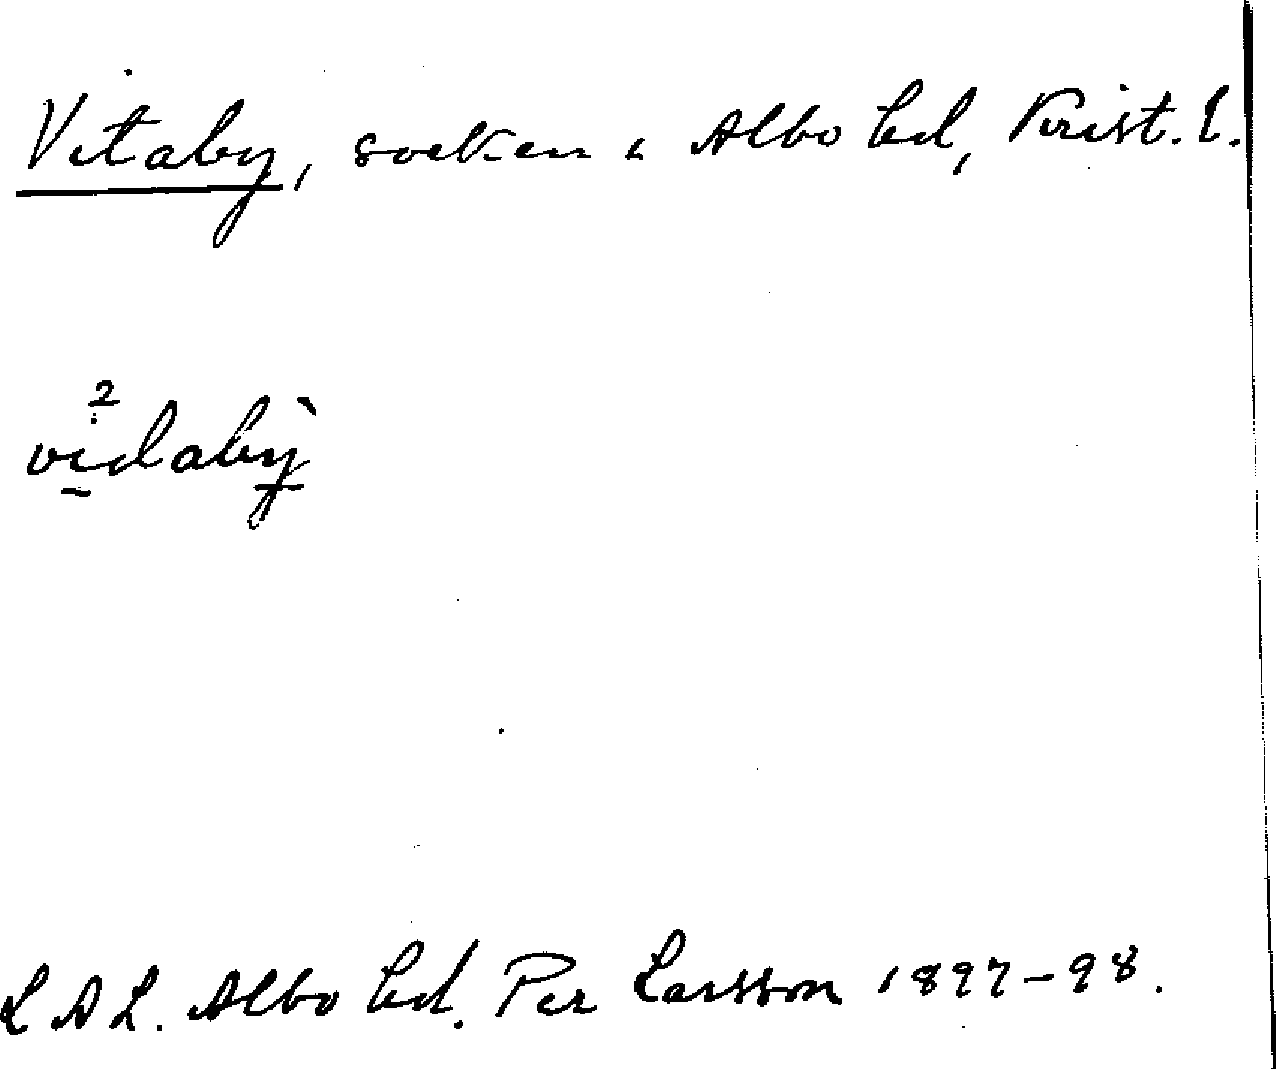 Vitaby, socken i Albo hd, Krist. l.
vi²dabỳ
L A L. Albo hd. Per Larsson 1897-98.